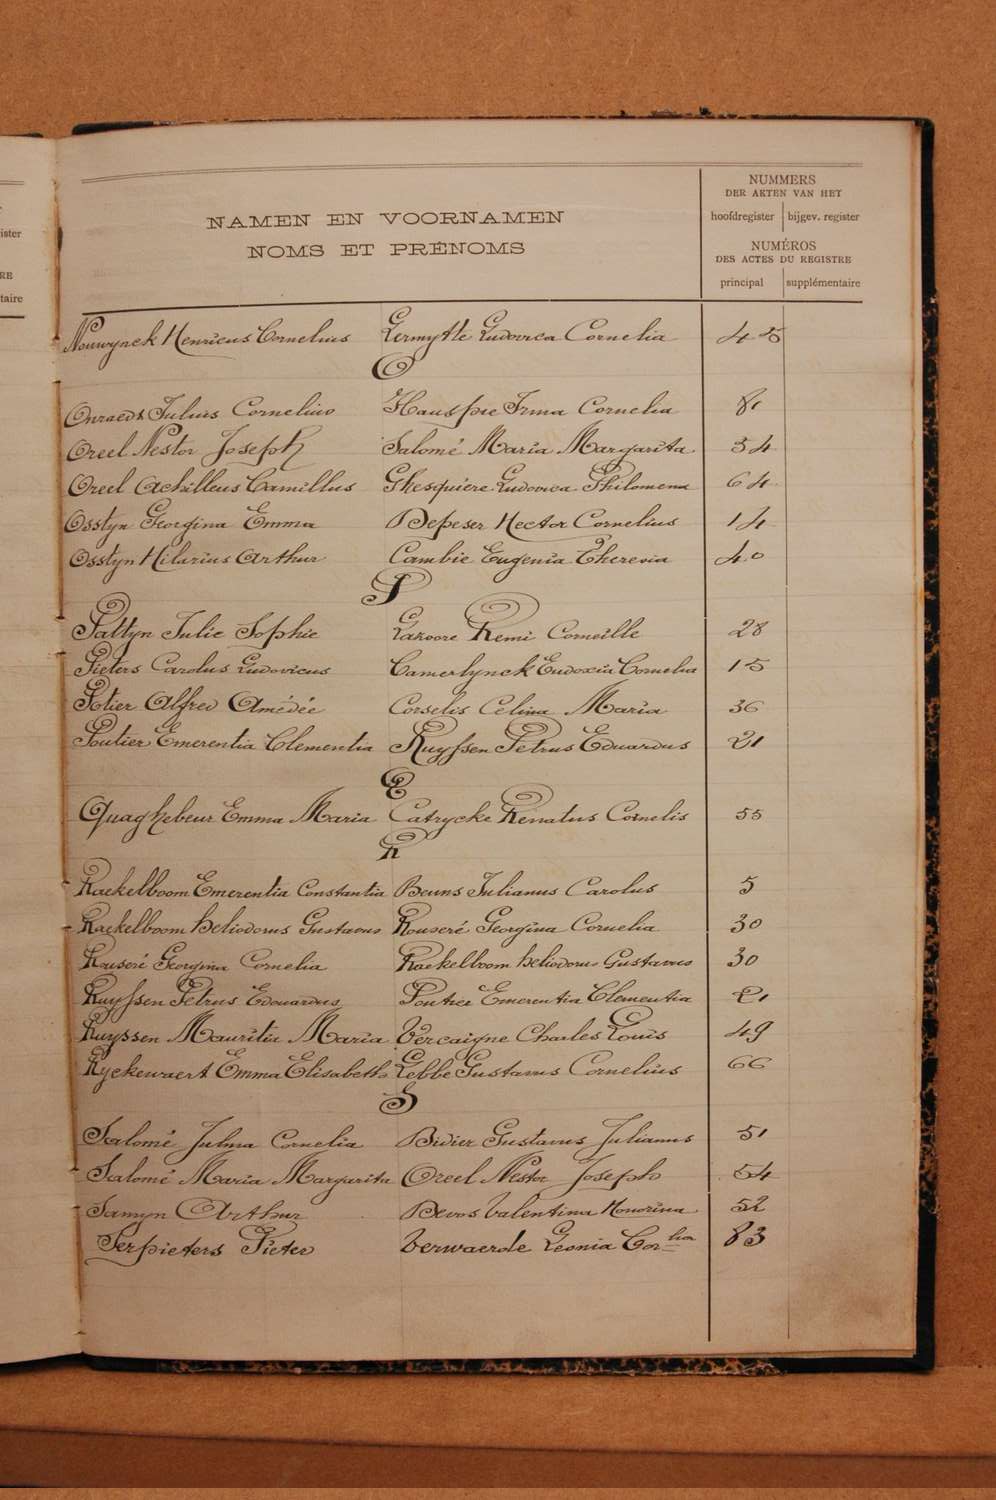 ister
RE
taire
NAMEN EN VOORNAMEN
NOMS ET PRÉNOMS
NUMMERS
DER AKTEN VAN HET
hoofdregister bijgev. register
NUMÉROS
DES ACTES DU REGISTRE
principal supplémentaire
Nouwynck Henricus Cornelius Lermytte Ludovica Cornelia 45
O
Onraedt Julius Cornelius Hauspie Irma Cornelia 81
Oreel Nestor Joseph Salomé Maria Margarita 54
Oreel Achilleus Camillus Ghesquiere Ludovica Philomena 64
Osstyn Georgina Emma Depeser Hector Cornelius 14
Osstyn Hilarius Arthur Cambie Eugenia Theresia 40
P
Pattyn Julie Sophie Lakoore Remi Corneille 28
Pieters Carolus Ludovicus Camerlynck Eudoxia Cornelia 15
Potier Alfred Amédée Corselis Celina Maria 36
Poutier Emerentia Clementia Ruyssen Petrus Eduardus 21
Q
Quaghebeur Emma Maria Catrycke Renatus Cornelis 55
R
Raekelboom Emerentia Constantia Beuns Julianus Carolus 5
Raekelboom heliodorus Gustavus Rouseré Georgina Cornelia 30
Rouseré Georgina Cornelia Raekelboom heliodorus Gustavus 30
Ruyssen Petrus Edouardus Poutier Emerentia Clementia 21
Ruyssen Mauritia Maria Vercaigne Charles Louis 49
Ryckewaert Emma Elisabeth Lebbe Gustavus Cornelius 66
S
Salomé Julma Cornelia Didier Gustavus Julianus 51
Salomé Maria Margarita Oreel Nestor Joseph 54
Samyn Arthur Devos Valentina Honorina 52
Serpieters Pieter Verwaerde Leonia Cor-lia 83